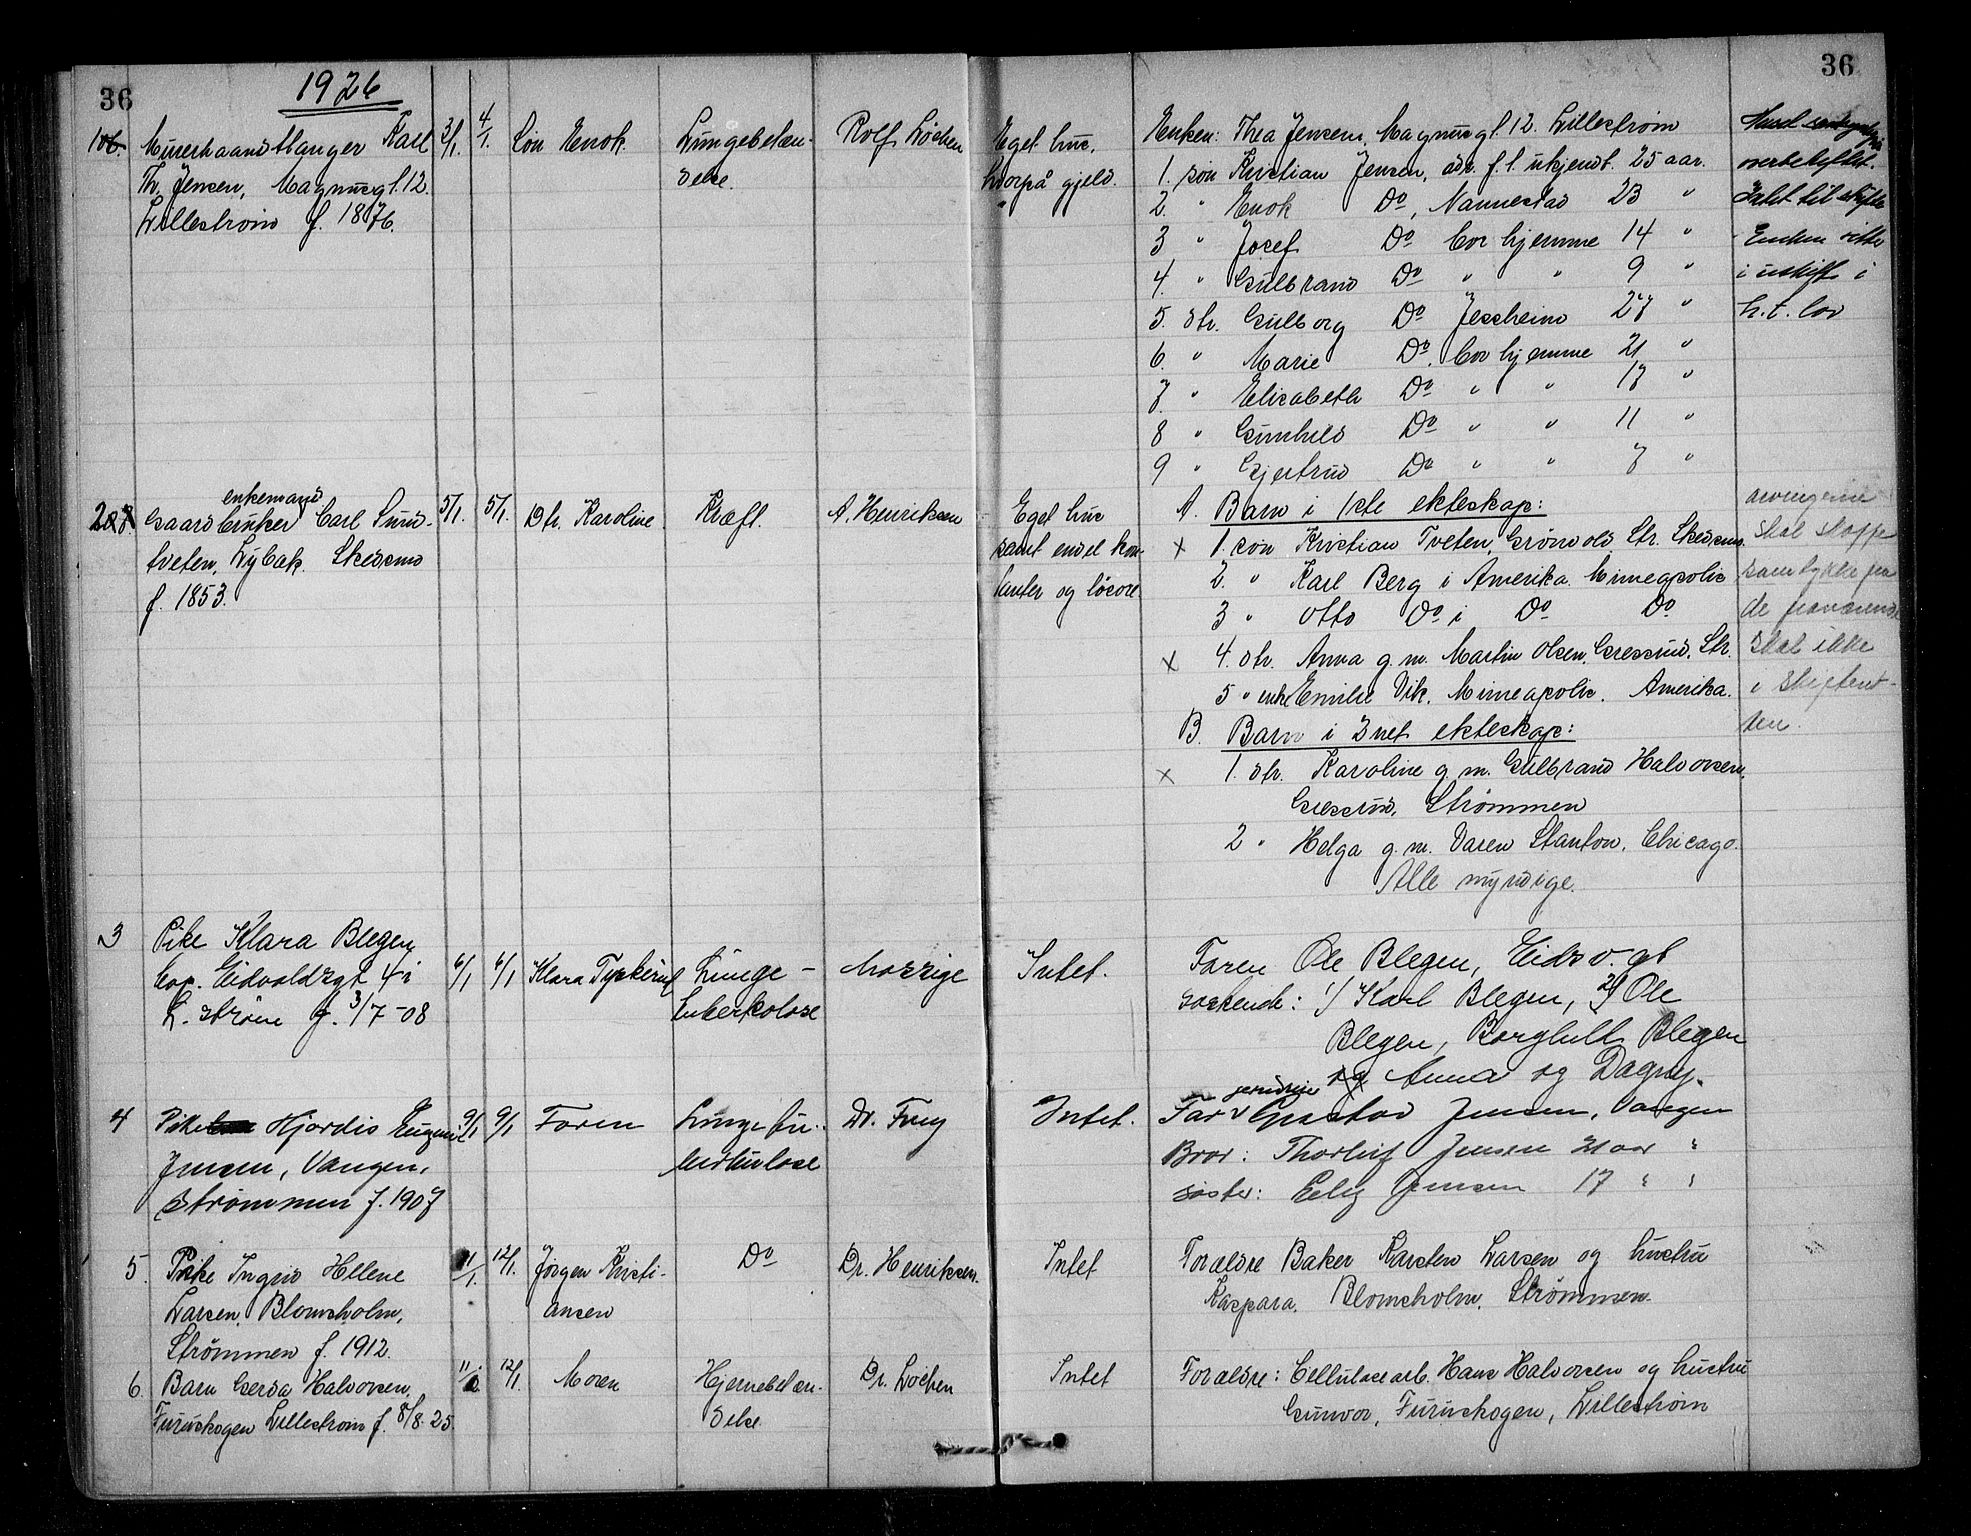 36
1926
36
Murerhaandtlanger Karl
Th. Jensen, Magnusgt. 12.
Lillestrøm f. 1876.
3/1.
4/1.
Søn Enok.
Lungebetæn-
delse.
Rolf Løchen
Eget hus,
hvorpå gjeld.
Enken: Thea Jensen, Magnusgt. 12. Lillestrøm
1. søn Kristian Jensen, adr. f. t. ukjendt. 25 aar.
2. " Enok Do, Nannestad 23 "
3 " Josef Do bor hjemme 14 "
4. " Gulbrand Do " " 9 "
5. dtr. Gulborg Do Jessheim 27 "
6. " Marie Do. bor hjemme 21 "
7. " Elisabeth Do " " 17 "
8 " Gunhild Do " " 11 "
9 " Gjertrud Do " " 7 "
overbeheftet.
Intet til skifte
Enken sitter
i uskift i
h. t. lov
2
enkemand
Gaardbruker Carl Sund-
tveten, Lybæk. Skedsmo
f. 1853.
5/1.
5/1.
Dtr. Karoline
Kræft.
A. Henriksen
Eget hus
samt endel kon-
tanter og løsøre.
A. Barn i 1ste ekteskap:
x 1. søn Kristian Tveten, Grønvold, Str. Skedsmo.
2. " Karl Berg i Amerika. Mineapolis
3 " Otto Do i Do Do
x 4. dtr. Anna g. m. Martin Olsen, Gresrud. Str.
5 " enke Emilie Vik. Mineapolis. Amerika.
B. Barn i 2net ekteskap:
x 1. dtr. Karoline g. m. Gulbrand Halvorsen,
Gresrud, Strømmen
2 " Helga g. m. Varen Stanton, Chicago.
Alle myndige.
arvingerne
skal skaffe
samtykke fra
de fraværende
skal ikke
i skifteret-
ten.
3
Pike Klara Blegen
bop. Eidvoldsgt 4 i
L. strøm f. 3/7-08
6/1
6/1
Klara Tyskerud
Lunge-
tuberkolose
Intet.
Faren Ole Blegen, Eidsv. gt
søskende: 1/ Karl Blegen, 2/ Ole
Blegen, Borghild Blegen
og Anna og Dagny.
4
Pike Hjordis Eugenie
Jensen, Vangen,
Strømmen f. 1907
9/1
9/1
Faren
Lunge tu-
berkulose
Dr. Frey
Intet.
Far Gustav Jensen, Vangen
Bror: Thorleif Jensen 21 aar "
søster: Jensen 17 " "
5.
Pike Ingrid Helene
Larsen, Blomsholm,
Strømmen f. 1912.
11/1.
12/1.
Jørgen Kristi-
ansen
Do
Dr. Henriksen.
Intet
Forældre Baker Karsten Larsen og hustru
Kaspara. Blomsholm, Strømmen.
6.
Barn Gerda Halvorsen,
Furuskogen Lillestrøm f. 8/8. 25.
11/1
12/1.
Moren
Hjernebetæn-
delse.
Dr. Løchen
Intet
Forældre: Cellulosearb. Hans Halvorsen og hustru
Gunvor, Furuskogen, Lillestrøm